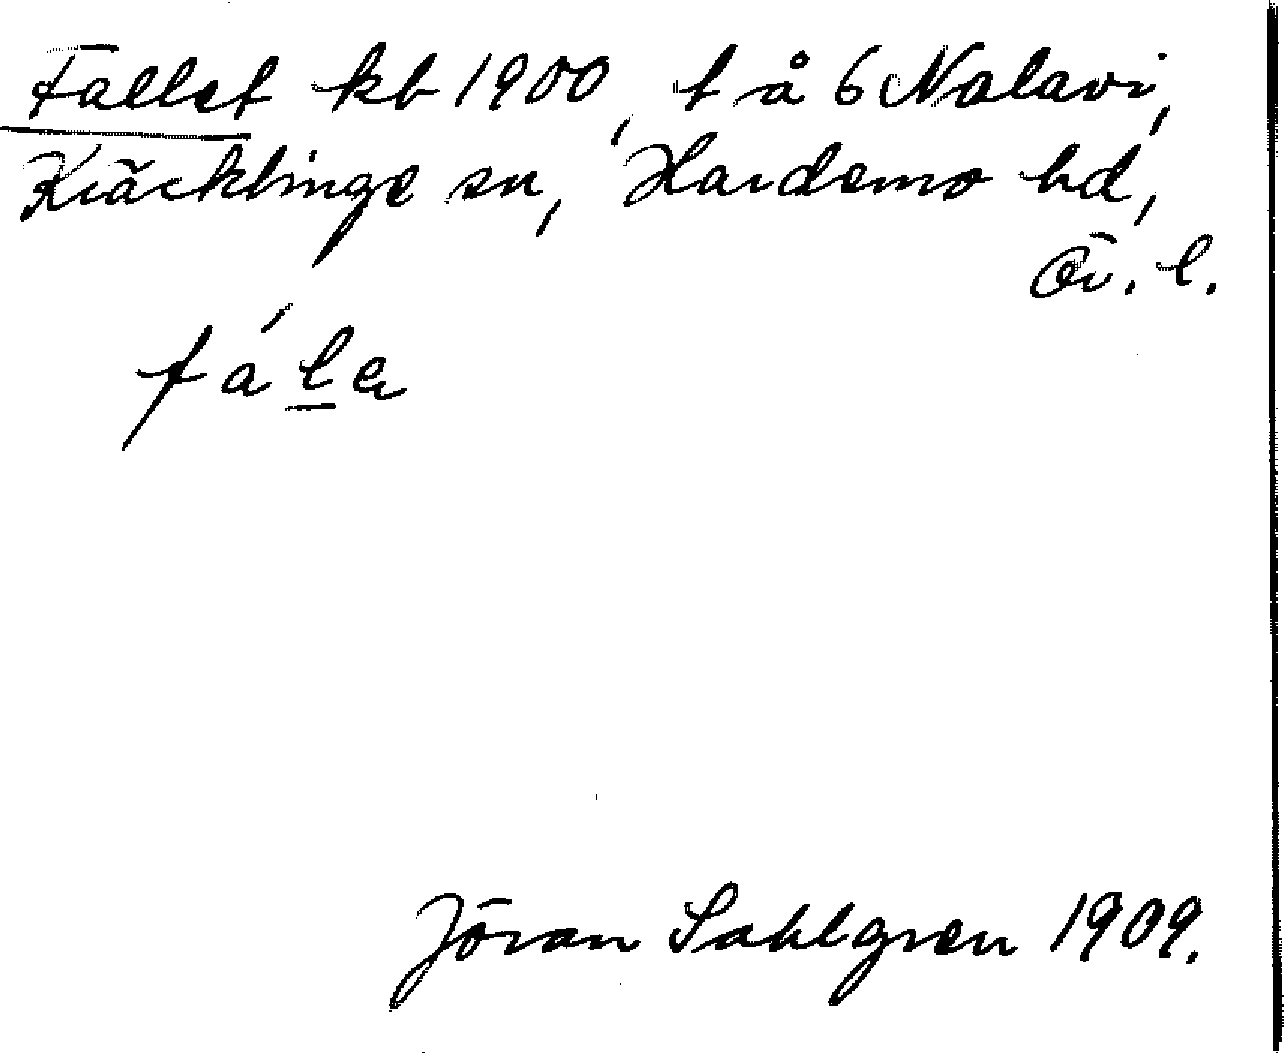 Fallet kb 1900, t å 6 Nalavi,
Kräcklinge sn, Hardemo hd,
Ör. l.
fála
Jöran Sahlgren 1909.